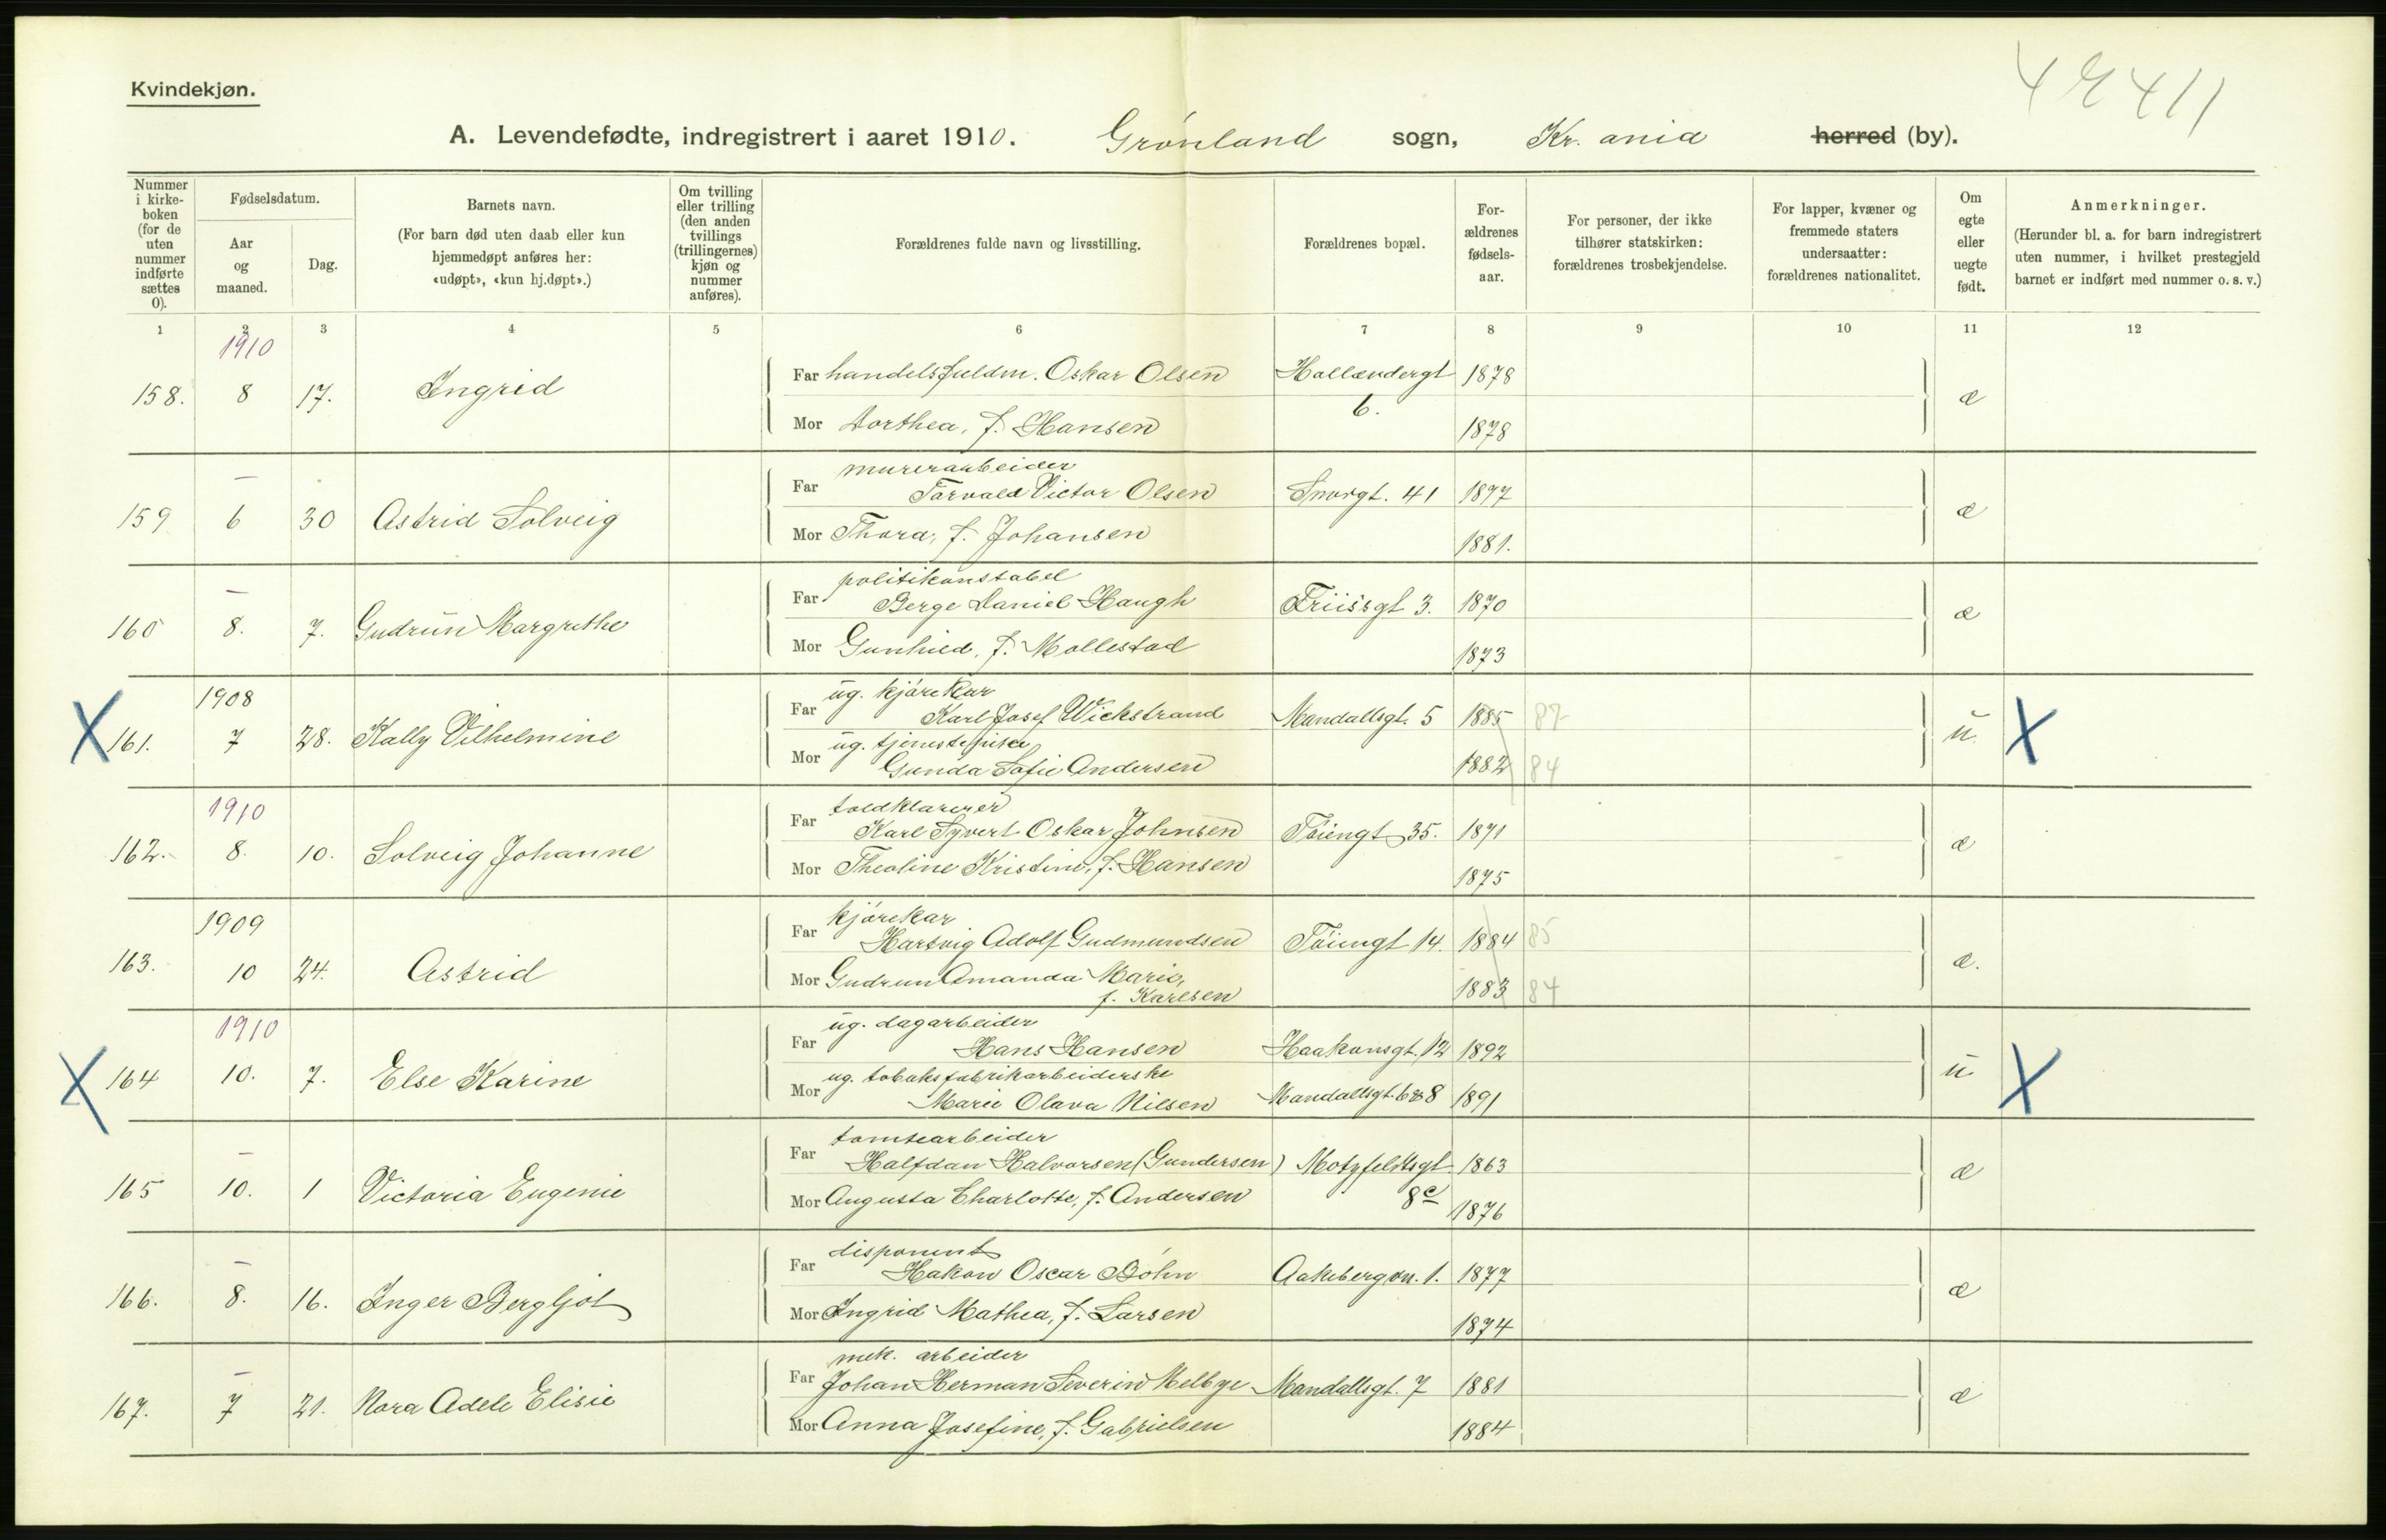 Kvindekjøn.
A. Levendefødte, indregistrert i aaret 1910. Grønland sogn, Kr. ania herred (by).
Nummer i kirke-boken (for de uten nummer indførte sættes 0).
Fødselsdatum.
Aar og maaned.
Dag.
Barnets navn.
(For barn død uten daab eller kun hjemmedøpt anføres her: «udøpt», «kun hj.døpt».)
Om tvilling eller trilling (den anden tvillings (trillingernes) kjøn og nummer anføres).
Forældrenes fulde navn og livsstilling.
Forældrenes bopæl.
For-ældrenes fødsels-aar.
For personer, der ikke tilhører statskirken: forældrenes trosbekjendelse.
For lapper, kvæner og fremmede staters undersaatter: forældrenes nationalitet.
Om egte eller uegte født.
Anmerkninger.
(Herunder bl. a. for barn indregistrert uten nummer, i hvilket prestegjeld barnet er indført med nummer o. s. v.)
1 2 3 4 5 6 7 8 9 10 11 12
1910
158. 8 17. Ingrid Far handelsfuldm. Oskar Olsen Hollændergt 6. 1878 æ
Mor Dorthea, f. Hansen 1878
—
159. 6 30 Astrid Solveig Far murerarbeider
Torvald Victor Olsen Smorgt. 41 1877 æ
Mor Thora, f. Johansen 1881.
—
160 8. 7. Gudrun Margrethe Far politikonstabel
Berge Daniel Haugh Friisgt 3. 1870 æ
Mor Gunhild, f. Mollestad 1873
1908
161. 7 28. Kally Vilhelmine Far ug. kjørekar
Karl Josef Wickstrand Mandallsgt. 5 1885 87 u
Mor ug. tjenestepike
Gunda Sofie Andersen 1882 84
1910
162. 8. 10. Solveig Johanne Far toldklarerer
Karl Syvert Oskar Johnsen Töiengt 35. 1871 æ
Mor Theoline Kristine, f. Hansen 1875
1909
163. 10 24. Astrid Far kjørekar
Hartvig Adolf Gudmundsen Töiengt 14. 1884 85 æ.
Mor Gudrun Amanda Marie,
f. Karlsen 1883 84
1910
164 10. 7. Else Karine Far ug. dagarbeider
Hans Hansen Haakonsgt. 12 1892 u
Mor ug. tobaksfabrikarbeiderske
Marie Olava Nilsen Mandallsgt. 6 & 8 1891
—
165 10. 1 Victoria Eugenie Far tomtearbeider
Halfdan Halvorsen (Gundersen) Motzfeldtsgt. 8c 1863 æ
Mor Augusta Charlotte, f. Andersen 1876
—
166. 8. 16. Inger Bergljot Far disponent
Hakon Oscar Bøhn Aakebergvn. 1. 1877 æ
Mor Ingrid Mathea, f. Larsen 1874
—
167. 7 21. Nora Adele Elisie Far mek. arbeider
Johan Herman Severin Melbye Mandallsgt. 7 1881 æ
Mor Anna Josefine, f. Gabrielsen 1884